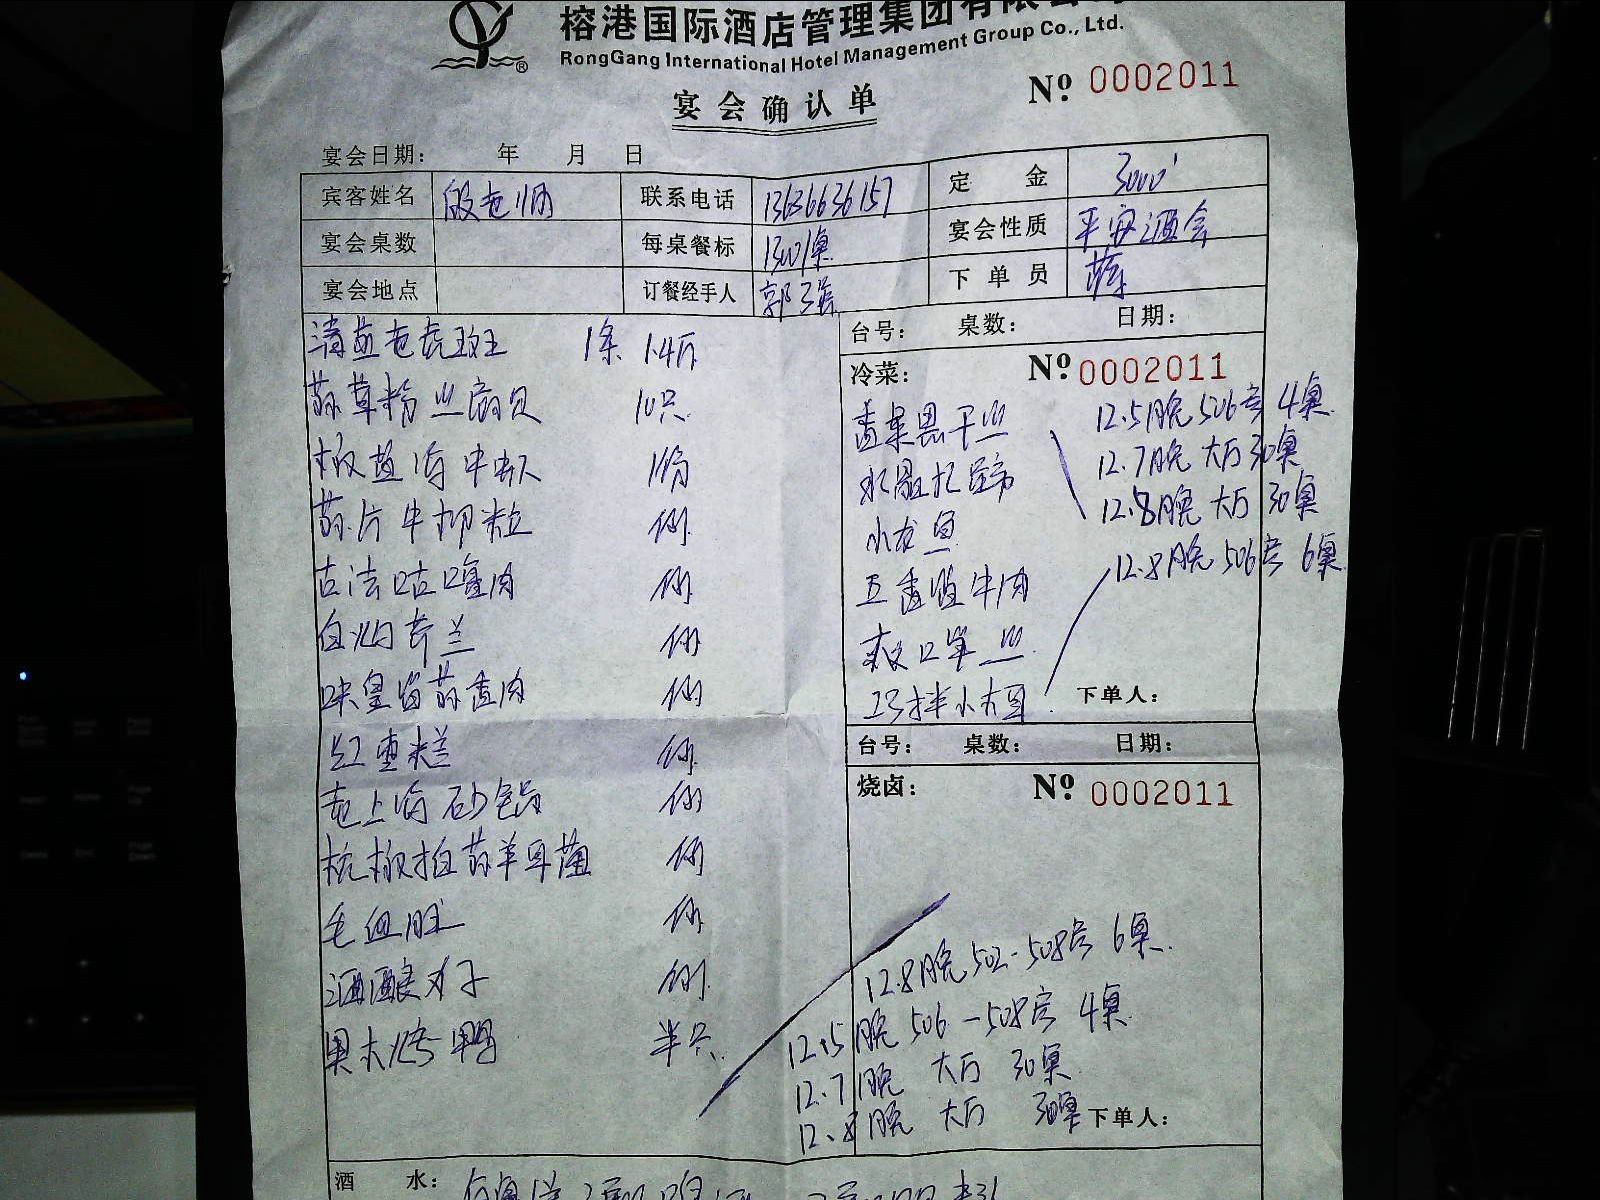 榕港国际酒店管理集团有限公司
RongGang International Hotel Management Group Co., Ltd.
宴会确认单
№ 0002011
宴会日期: 年 月 日
宾客姓名 殷老师 联系电话 13636636157 定金 3000
宴会桌数 每桌餐标 1300/桌 宴会性质 平安酒会
宴会地点 订餐经手人 郭 下单员
清蒸老虎斑 1条 1.4斤
蒜茸粉丝扇贝 10只
椒盐海中虾 1份
蒜片牛柳粒 例
古法咕噜肉 例
白灼芥兰 例
味皇酱蒜香肉 例
红枣糕 例
老上海砂锅 例
杭椒拍蒜羊耳菌 例
毛血旺 例
酒酿丸子 例
果木烤鸭 半只
台号: 桌数: 日期:
冷菜: № 0002011
香菜黑干丝
水晶扎蹄
小龙鱼
五香酱牛肉
爽口笋丝
巧拌小木耳
12.5晚 506房 4桌
12.7晚 大厅 30桌
12.8晚 大厅 30桌
12.8晚 506房 6桌
下单人:
台号: 桌数: 日期:
烧卤: № 0002011
12.8晚 502-508房 6桌
12.5晚 506-508房 4桌
12.7晚 大厅 30桌
12.8晚 大厅 30桌
下单人:
酒水: